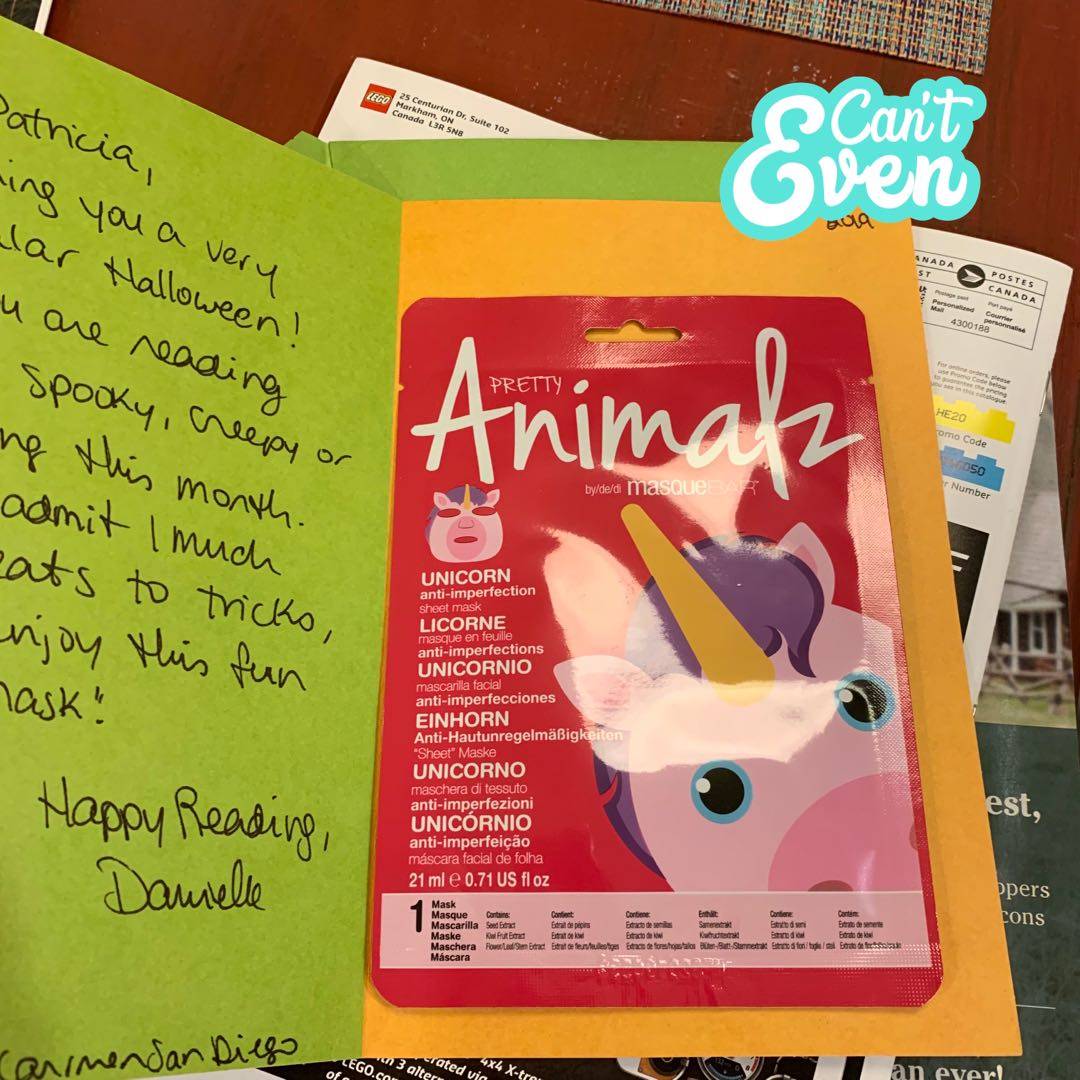 Patricia,
ing you a very
lar Halloween!
u are reading
spooky, creepy or
ng this month.
admit I much
eats to tricks,
njoy this fun
mask!
Happy Reading,
Danielle
carmenSanDiego
LEGO
25 Centurian Dr, Suite 102
Markham, ON
Canada L3R 5N8
Can't
Even
2019
PRETTY
Animalz
by/de/di masqueBAR
UNICORN
anti-imperfection
sheet mask
LICORNE
masque en feuille
anti-imperfections
UNICORNIO
mascarilla facial
anti-imperfecciones
EINHORN
Anti-Hautunregelmäßigkeiten
"Sheet" Maske
UNICORNO
maschera di tessuto
anti-imperfezioni
UNICÓRNIO
anti-imperfeição
máscara facial de folha
21 ml e 0.71 US fl oz
1
Mask
Masque
Mascarilla
Maske
Maschera
Máscara
Contains:
Seed Extract
Kiwi Fruit Extract
Flower/Leaf/Stem Extract
Contient:
Extrait de pépins
Extrait de kiwi
Extrait de fleurs/feuilles/tiges
Contiene:
Extracto de semillas
Extracto de kiwi
Extracto de flores/hojas/tallos
Enthält:
Samenextrakt
Kiwifruchtextrakt
Blüten-/Blatt-/Stammextrakt
Contiene:
Estratto di semi
Estratto di kiwi
Estratto di fiori / foglie / steli
Contém:
Extrato de semente
Extrato de kiwi
CANADA
POST
POSTES
CANADA
Postage paid
Personalized
Mail
Port payé
Courrier
personnalisé
4300188
For online orders, please
use Promo Code below
to guarantee the pricing
you see in this catalogue.
HE20
Promo Code
6050
er Number
est,
ppers
cons
an ever!
4x4 X-tre
rated via
h 3 altern
LEGO.co